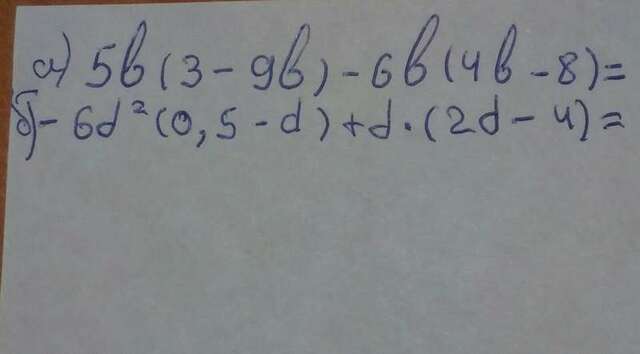 а) 5в(3-9в)-6в(4в-8)=
б) -6d²(0,5-d)+d·(2d-4)=